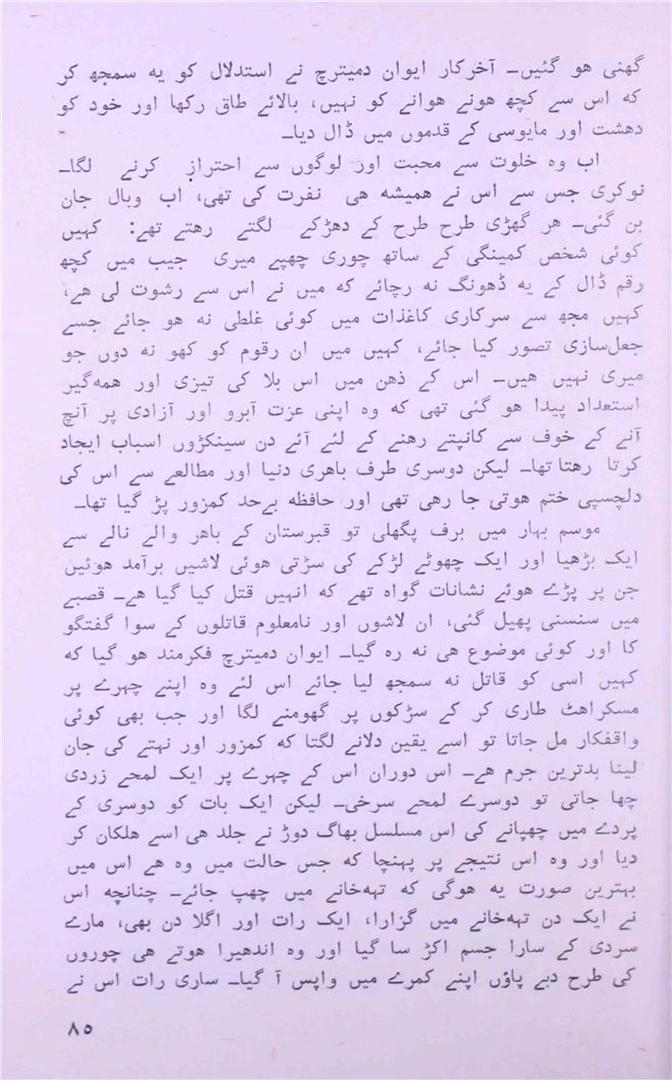 گھنی ہو گئیں۔ آخرکار ایوان دمیترچ نے استدلال کو یہ سمجھ کر
کہ اس سے کچھ ہونے ہوانے کو نہیں، بالائے طاق رکھا اور خود کو
دہشت اور مایوسی کے قدموں میں ڈال دیا۔
اب وہ خلوت سے محبت اور لوگوں سے احتراز کرنے لگا۔
نوکری جس سے اس نے ہمیشہ ہی نفرت کی تھی، اب وبال جان
بن گئی۔ ہر گھڑی طرح طرح کے دھڑکے لگتے رہتے تھے: کہیں
کوئی شخص کمینگی کے ساتھ چوری چھپے میری جیب میں کچھ
رقم ڈال کے یہ ڈھونگ نہ رچائے کہ میں نے اس سے رشوت لی ہے،
کہیں مجھ سے سرکاری کاغذات میں کوئی غلطی نہ ہو جائے جسے
جعل‌سازی تصور کیا جائے، کہیں میں ان رقوم کو کھو نہ دوں جو
میری نہیں ہیں۔ اس کے ذہن میں اس بلا کی تیزی اور ہمہ‌گیر
استعداد پیدا ہو گئی تھی کہ وہ اپنی عزت آبرو اور آزادی پر آنچ
آنے کے خوف سے کانپتے رہنے کے لئے آئے دن سینکڑوں اسباب ایجاد
کرتا رہتا تھا۔ لیکن دوسری طرف باہری دنیا اور مطالعے سے اس کی
دلچسپی ختم ہوتی جا رہی تھی اور حافظہ بے‌حد کمزور پڑ گیا تھا۔
موسم بہار میں برف پگھلی تو قبرستان کے باہر والے نالے سے
ایک بڑھیا اور ایک چھوٹے لڑکے کی سڑتی ہوئی لاشیں برآمد ہوئیں
جن پر پڑے ہوئے نشانات گواہ تھے کہ انہیں قتل کیا گیا ہے۔ قصبے
میں سنسنی پھیل گئی، ان لاشوں اور نامعلوم قاتلوں کے سوا گفتگو
کا اور کوئی موضوع ہی نہ رہ گیا۔ ایوان دمیترچ فکرمند ہو گیا کہ
کہیں اسی کو قاتل نہ سمجھ لیا جائے اس لئے وہ اپنے چہرے پر
مسکراہٹ طاری کر کے سڑکوں پر گھومنے لگا اور جب بھی کوئی
واقفکار مل جاتا تو اسے یقین دلانے لگتا کہ کمزور اور نہتے کی جان
لینا بدترین جرم ہے۔ اس دوران اس کے چہرے پر ایک لمحے زردی
چھا جاتی تو دوسرے لمحے سرخی۔ لیکن ایک بات کو دوسری کے
پردے میں چھپانے کی اس مسلسل بھاگ دوڑ نے جلد ہی اسے ہلکان کر
دیا اور وہ اس نتیجے پر پہنچا کہ جس حالت میں وہ ہے اس میں
بہترین صورت یہ ہوگی کہ تہہ‌خانے میں چھپ جائے۔ چنانچہ اس
نے ایک دن تہہ‌خانے میں گزارا، ایک رات اور اگلا دن بھی، مارے
سردی کے سارا جسم اکڑ سا گیا اور وہ اندھیرا ہوتے ہی چوروں
کی طرح دبے پاؤں اپنے کمرے میں واپس آ گیا۔ ساری رات اس نے
۸۵